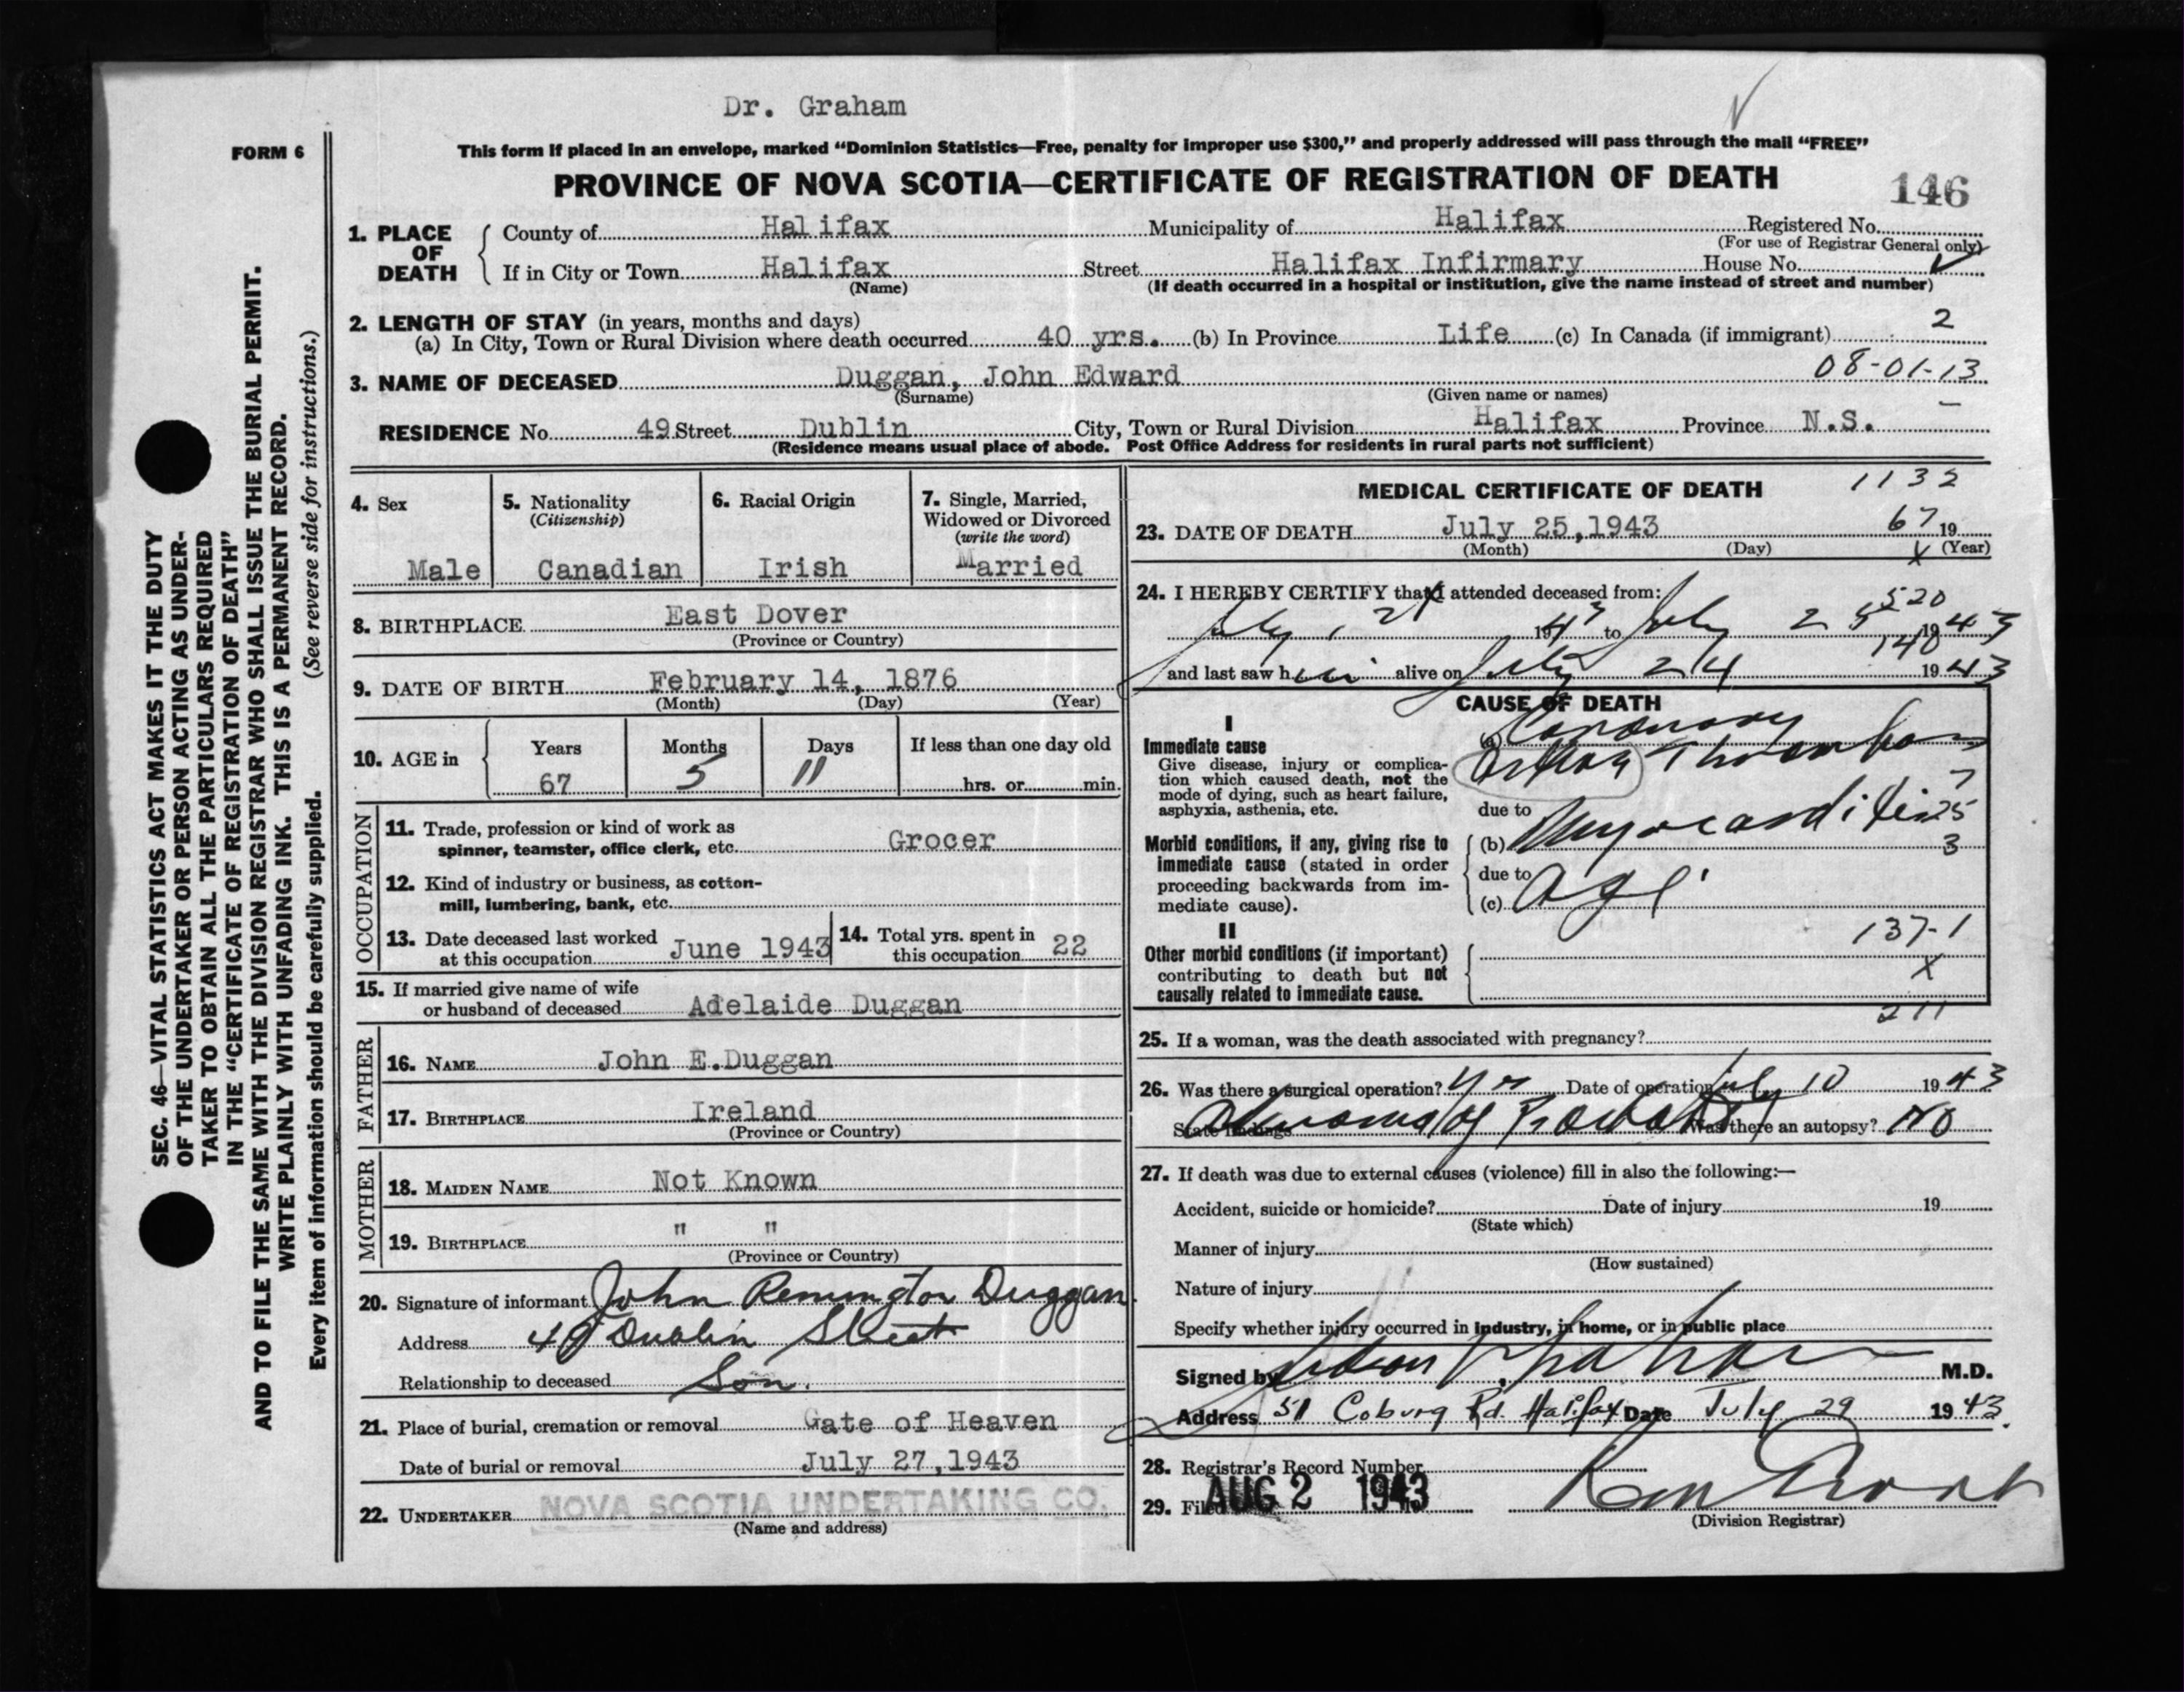 Dr. Graham
FORM 6
This form if placed in an envelope, marked “Dominion Statistics—Free, penalty for improper use $300,” and properly addressed will pass through the mail “FREE”
PROVINCE OF NOVA SCOTIA—CERTIFICATE OF REGISTRATION OF DEATH
146
1. PLACE OF DEATH
County of Halifax Municipality of Halifax Registered No.
(For use of Registrar General only)
If in City or Town Halifax Street Halifax Infirmary House No.
(Name) (If death occurred in a hospital or institution, give the name instead of street and number)
2. LENGTH OF STAY (in years, months and days)
(a) In City, Town or Rural Division where death occurred 40 yrs. (b) In Province Life (c) In Canada (if immigrant) 2
08-01-13
3. NAME OF DECEASED Duggan, John Edward
(Surname) (Given name or names)
RESIDENCE No. 49 Street Dublin City, Town or Rural Division Halifax Province N.S.
(Residence means usual place of abode. Post Office Address for residents in rural parts not sufficient)
4. Sex
Male
5. Nationality
(Citizenship)
Canadian
6. Racial Origin
Irish
7. Single, Married,
Widowed or Divorced
(write the word)
Married
8. BIRTHPLACE East Dover
(Province or Country)
9. DATE OF BIRTH February 14, 1876
(Month) (Day) (Year)
10. AGE in
Years Months Days If less than one day old
67 5 11 hrs. or min.
OCCUPATION
11. Trade, profession or kind of work as
spinner, teamster, office clerk, etc. Grocer
12. Kind of industry or business, as cotton-
mill, lumbering, bank, etc.
13. Date deceased last worked
at this occupation June 1943
14. Total yrs. spent in
this occupation 22
15. If married give name of wife
or husband of deceased Adelaide Duggan
FATHER
16. NAME John E.Duggan
17. BIRTHPLACE Ireland
(Province or Country)
MOTHER
18. MAIDEN NAME Not Known
19. BIRTHPLACE " "
(Province or Country)
20. Signature of informant John Remington Duggan
Address 49 Dublin Street
Relationship to deceased Son.
21. Place of burial, cremation or removal Gate of Heaven
Date of burial or removal July 27,1943
22. UNDERTAKER NOVA SCOTIA UNDERTAKING CO.
(Name and address)
MEDICAL CERTIFICATE OF DEATH 1132
23. DATE OF DEATH July 25,1943 67 19
(Month) (Day) X (Year)
24. I HEREBY CERTIFY that I attended deceased from:
520
July 1943 to July 25 1943
140
and last saw him alive on July 24 1943
CAUSE OF DEATH
I
Immediate cause
Give disease, injury or complica-
tion which caused death, not the
mode of dying, such as heart failure,
asphyxia, asthenia, etc.
(a) Coronary
Artery Thrombosis
7
due to
Morbid conditions, if any, giving rise to
immediate cause (stated in order
proceeding backwards from im-
mediate cause).
(b) Myocarditis 25
3
due to
(c) Age
II
137-1
Other morbid conditions (if important)
contributing to death but not
causally related to immediate cause.
X
211
25. If a woman, was the death associated with pregnancy?
26. Was there a surgical operation? Yes Date of operation July 10 1943
State findings Adenoma of Prostate Was there an autopsy? No
27. If death was due to external causes (violence) fill in also the following:—
Accident, suicide or homicide? Date of injury 19
(State which)
Manner of injury
(How sustained)
Nature of injury
Specify whether injury occurred in industry, in home, or in public place
Signed by Judson V. Graham M.D.
Address 51 Coburg Rd. Halifax Date July 29 1943.
28. Registrar's Record Number
29. Filed AUG 2 1943
(Division Registrar)
SEC. 46—VITAL STATISTICS ACT MAKES IT THE DUTY
OF THE UNDERTAKER OR PERSON ACTING AS UNDER-
TAKER TO OBTAIN ALL THE PARTICULARS REQUIRED
IN THE “CERTIFICATE OF REGISTRATION OF DEATH”
AND TO FILE THE SAME WITH THE DIVISION REGISTRAR WHO SHALL ISSUE THE BURIAL PERMIT.
WRITE PLAINLY WITH UNFADING INK. THIS IS A PERMANENT RECORD.
Every item of information should be carefully supplied. (See reverse side for instructions.)